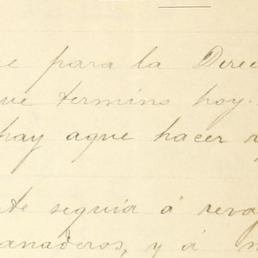 e para la Direc
ue termino hoy.
hay aque hacer
te seguia á reva
anaderos, y á